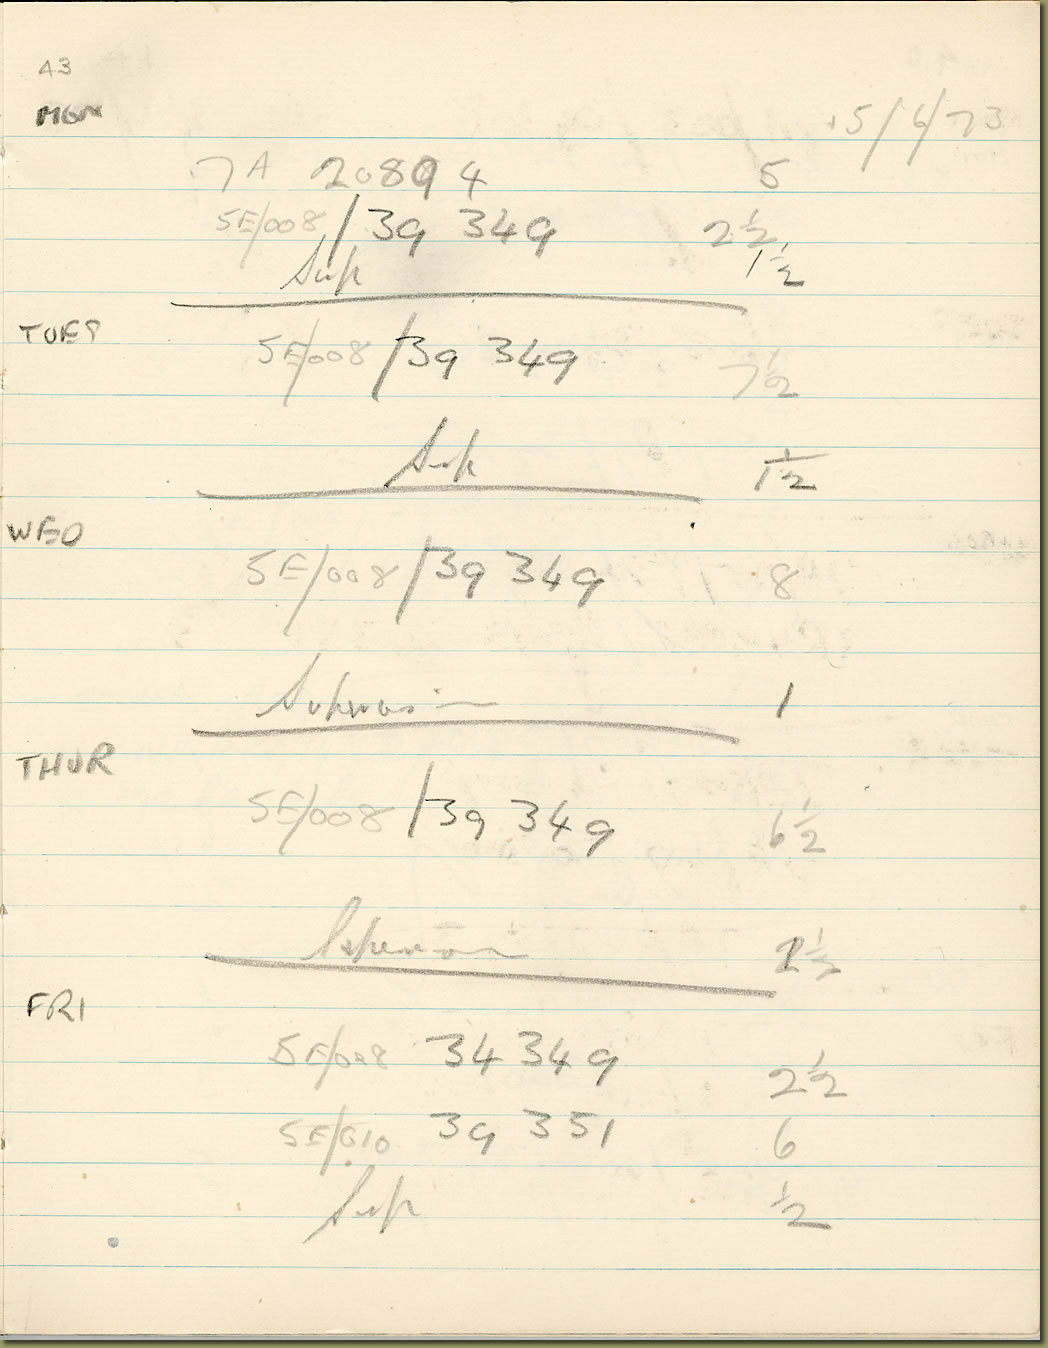 43
MON +5/6/73
7A 20894 5
5E/008/39 349 2½
Sup 1½
TUES
5E/008/39 349 7½
Sup 1½
WED
5E/008/39 349 8
Supervision 1
THUR
5E/008/39 349 6½
Supervision 2½
FRI
5E/008 34 349 2½
5E/010 39 351 6
Sup ½